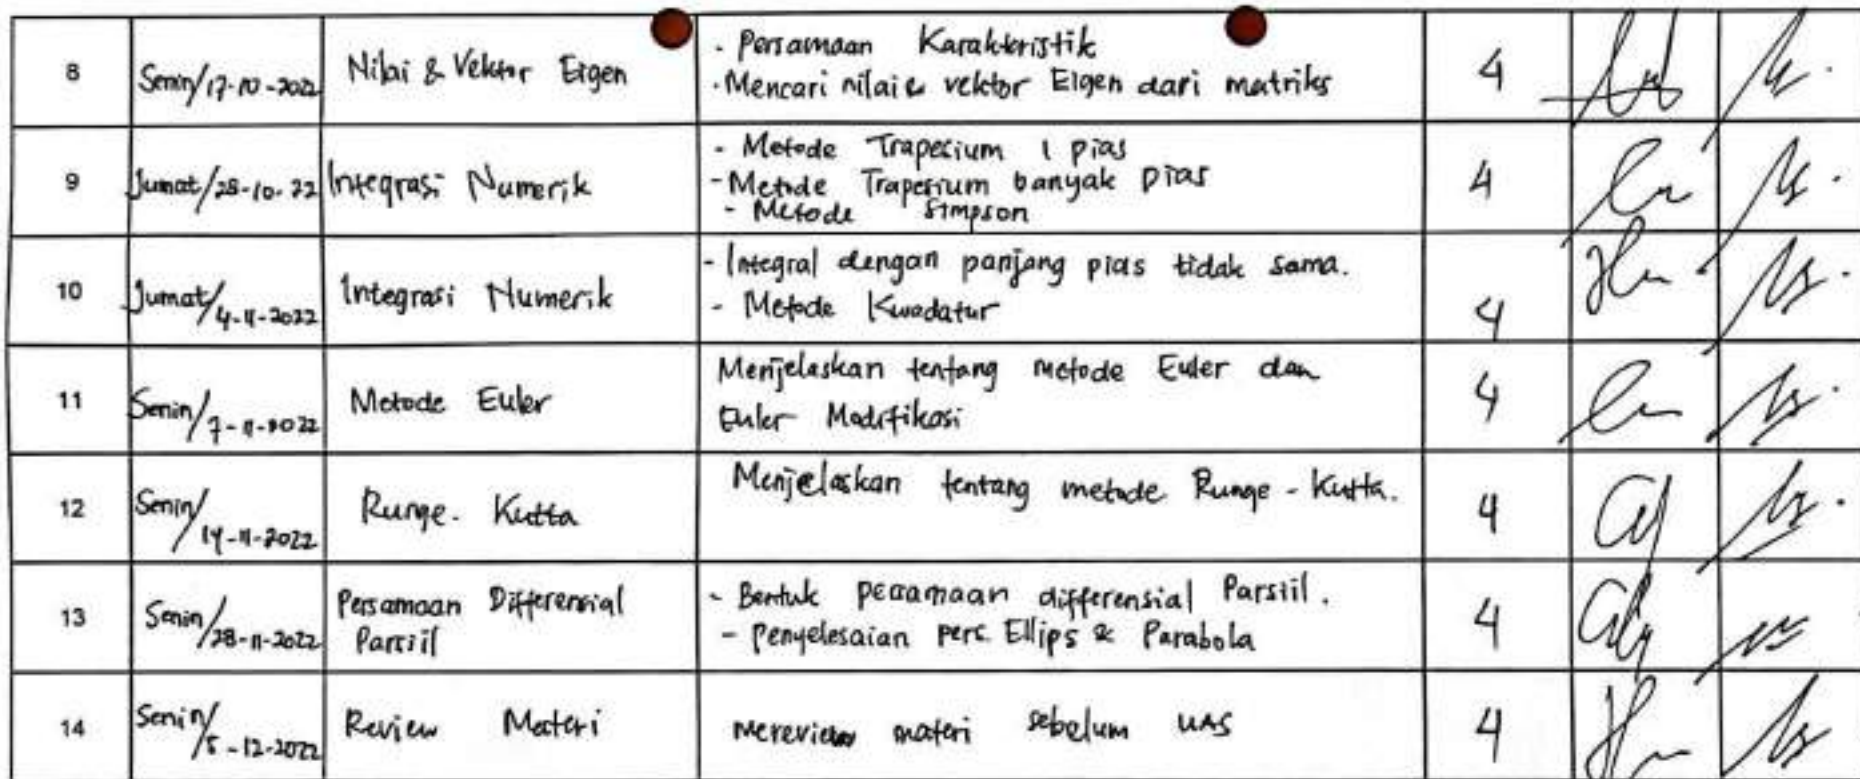 8 Senin/17-10-2022 Nilai & Vektor Eigen - Persamaan Karakteristik 4
- Mencari nilai & vektor Eigen dari matriks
9 Jumat/28-10-22 Integrasi Numerik - Metode Trapesium 1 pias 4
- Metode Trapesium banyak pias
- Metode Simpson
10 Jumat/4-11-2022 Integrasi Numerik - Integral dengan panjang pias tidak sama. 4
- Metode Kwadatur
11 Senin/7-11-2022 Metode Euler Menjelaskan tentang metode Euler dan 4
Euler Modifikasi
12 Senin/14-11-2022 Runge-Kutta Menjelaskan tentang metode Runge-Kutta. 4
13 Senin/28-11-2022 Persamaan Differensial - Bentuk persamaan differensial Parsiil. 4
Parsiil - Penyelesaian pers. Ellips & Parabola
14 Senin/5-12-2022 Review Materi Mereview materi sebelum UAS 4